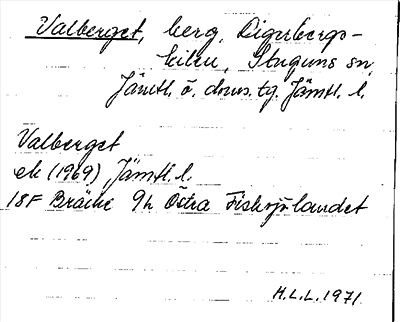 Valberget, berg, Digerbergs-
kilen, Stuguns sn,
Jämtl. ö. doms. tg. Jämtl. l.
Valberget
ek (1969) Jämtl. l.
18F Bräcke 9h Östra Fisksjölandet
H.L.L. 1971